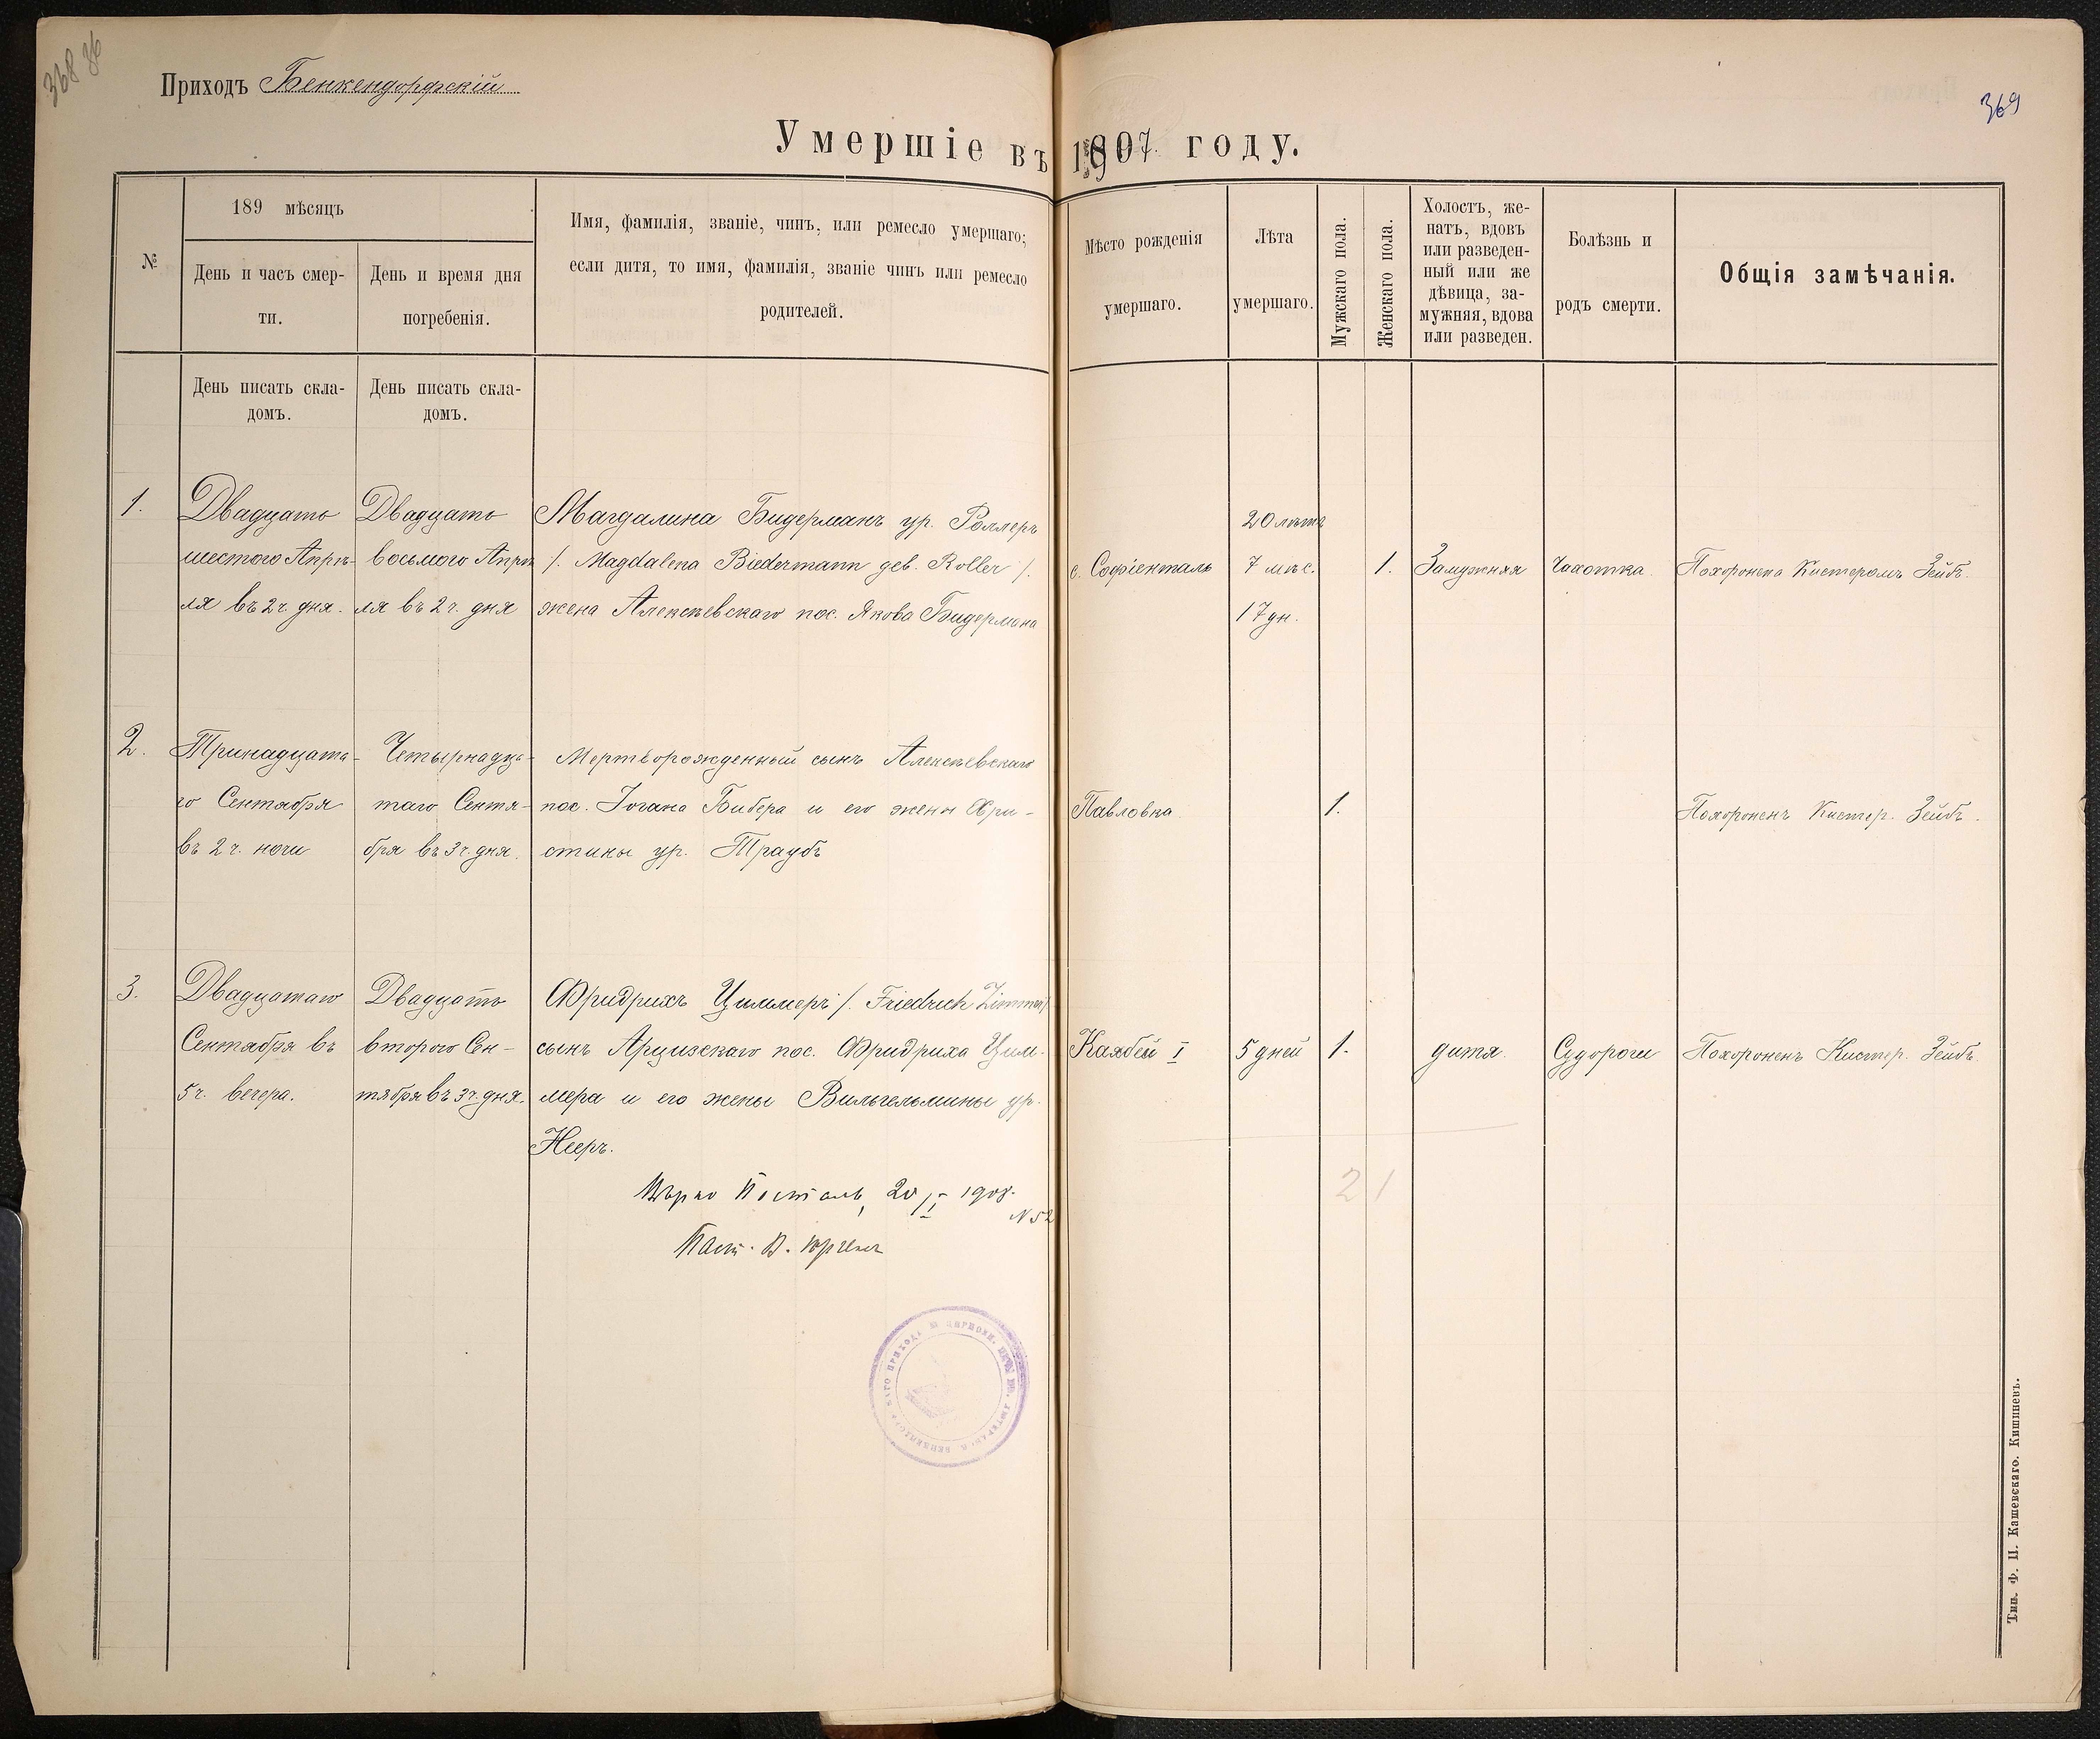 368 об
Приходъ Бенкендорфскій
369
Умершіе въ 1907. году.
№
189 мѣсяцъ
День и часъ смер-
ти.
День и время дня
погребенія.
Имя, фамилія, званіе, чинъ, или ремесло умершаго;
если дитя, то имя, фамилія, званіе чинъ или ремесло
родителей.
Мѣсто рожденія
умершаго.
Лѣта
умершаго.
Мужскаго пола.
Женскаго пола.
Холостъ, же-
натъ, вдовъ
или разведен-
ный или же
дѣвица, за-
мужняя, вдова
или разведен.
Болѣзнь и
родъ смерти.
Общія замѣчанія.
День писать скла-
домъ.
День писать скла-
домъ.
1.
Двадцать
шестого Апрѣ-
ля въ 2 ч. дня.
Двадцать
восьмого Апрѣ
ля въ 2 ч. дня
Магдалина Бидерманъ ур. Роллеръ
/. Magdalena Biedermann geb. Roller /.
жена Алексѣевскаго пос. Якова Бидермана
с. Софіенталь
20 лѣтъ
7 мѣс.
17 дн.
1.
Замужняя
Чахотка.
Похоронена Кистеромъ Зейбъ.
2.
Тринадцата-
го Сентября
въ 2 ч. ночи
Четырнадца-
таго Сентя-
бря въ 3 ч. дня.
Мертворожденный сынъ Алексѣевскаго
пос. Іогана Бибера и его жены Хри-
стины ур. Траубъ
Павловка.
1.
Похороненъ Кистер. Зейбъ.
3.
Двадцатаго
Сентября въ
5 ч. вечера.
Двадцать
второго Сен-
тября въ 3 ч. дня.
Фридрихъ Циммеръ /. Friedrich Zimmer /.
сынъ Арцизскаго пос. Фридриха Цим-
мера и его жены Вильгельмины ур.
Нееръ.
Каябей I
5 дней
1.
дитя.
Судороги
Похороненъ Кистер. Зейбъ.
2 1
Вѣрно Посталь, 20/I 1908.
N 52
Паст.
Тип. Ф. П. Кашевскаго. Кишиневъ.